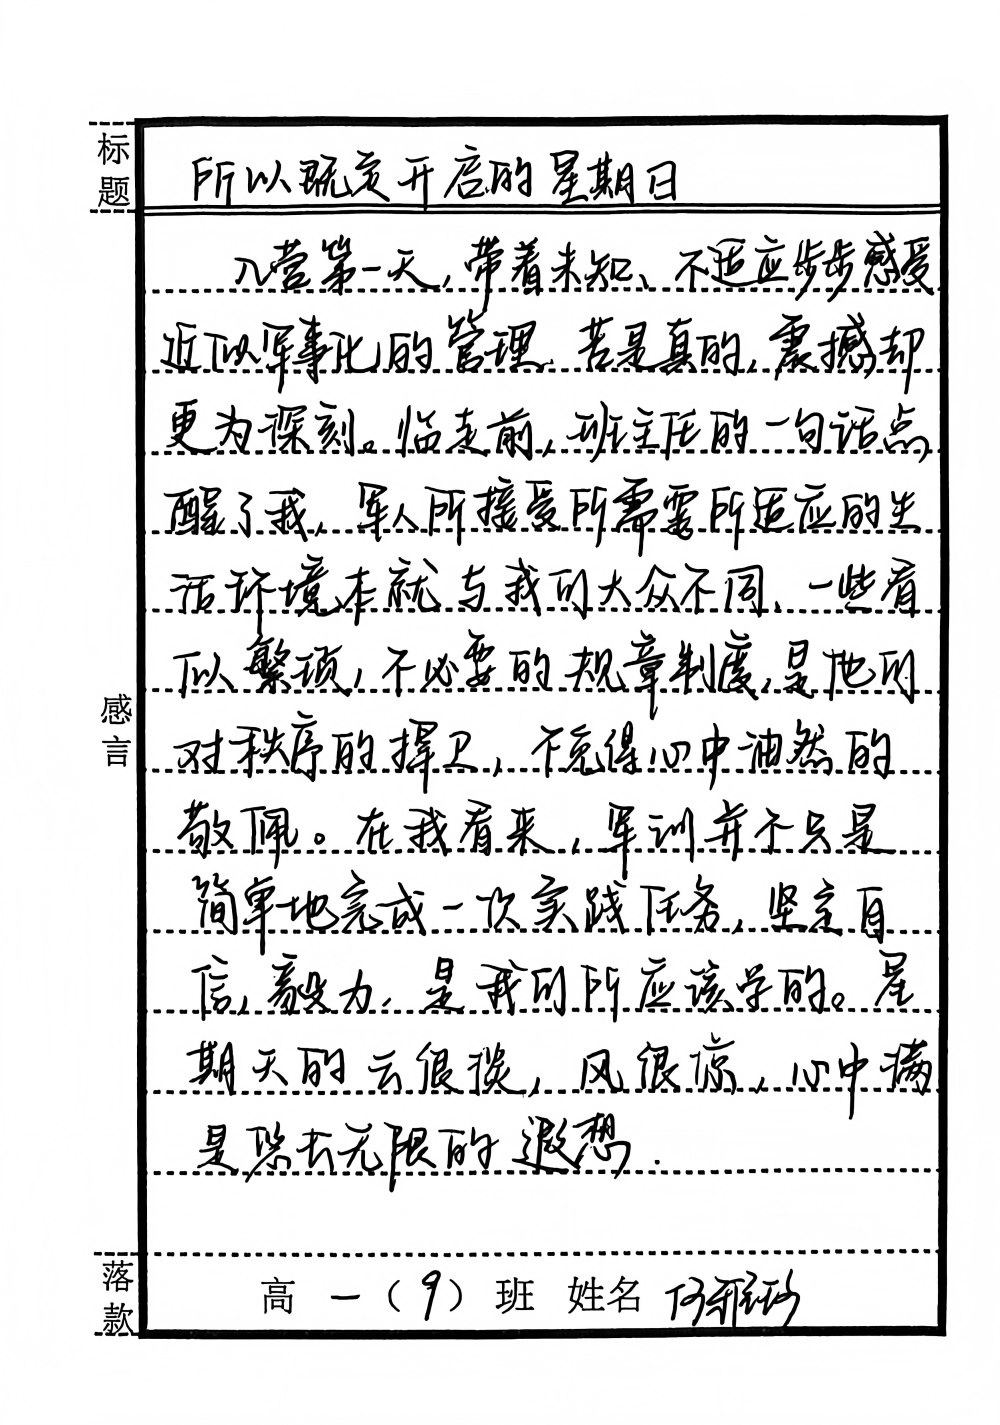 标题
所以既定开启的星期日
入营第一天，带着未知、不适应步步感受
近似军事化的管理．苦是真的，震撼却
更为深刻。临走前，班主任的一句话点
醒了我，军人所接受所需要所适应的生
活环境本就与我们大众不同、一些看
似繁琐，不必要的规章制度，是他们
对秩序的捍卫，不免得心中油然的
敬佩。在我看来，军训并不只是
简单地完成一次实践任务，坚定自
信，毅力，是我们所应该学的。星
期天的云很淡，风很凉，心中满
是
无限的遐想．
感言
落款
高一（9）班 姓名 何